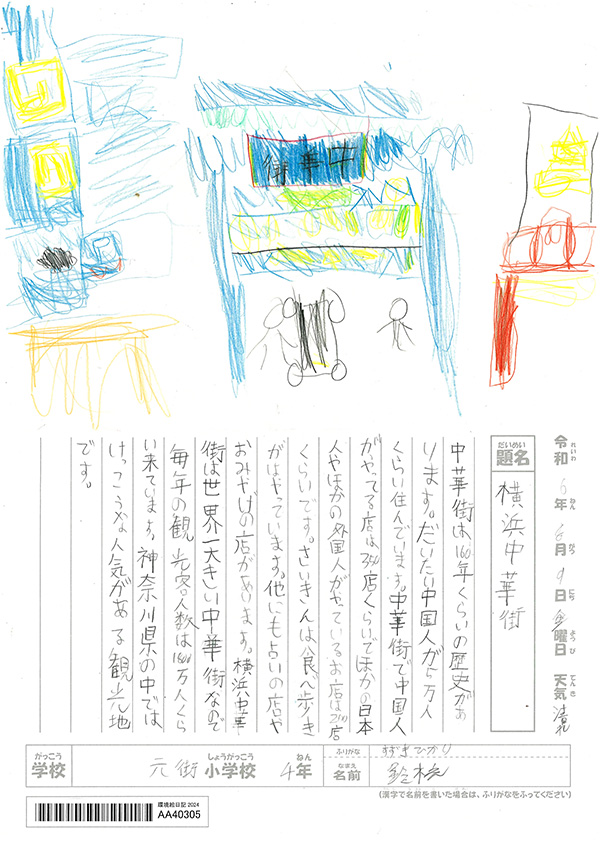 中華街
令和6年6月9日金曜日 天気 清れ
れいわ ねん がつ にち ようび てんき
だいめい
題名
横浜中華街
中華街は160年くらいの歴史があ
ります。だいたい中国人が5万人
くらい住んでいます。中華街で中国人
がやってる店は340店くらいでほかの日本
人やほかの外国人がやっているお店は240店
くらいです。さいきんは食べ歩き
がはやっています。他にも占いの店や
おみやげの店があります。横浜中華
街は世界一大きい中華街なので
毎年の観光客人数は1800万人くら
い来ています。神奈川県の中では
けっこうな人気がある観光地
です。
がっこう しょうがっこう ねん
学校 元街小学校 4年
ふりがな すずきひかり
なまえ
名前 鈴木
(漢字で名前を書いた場合は、ふりがなをふってください)
環境絵日記 2024
AA40305